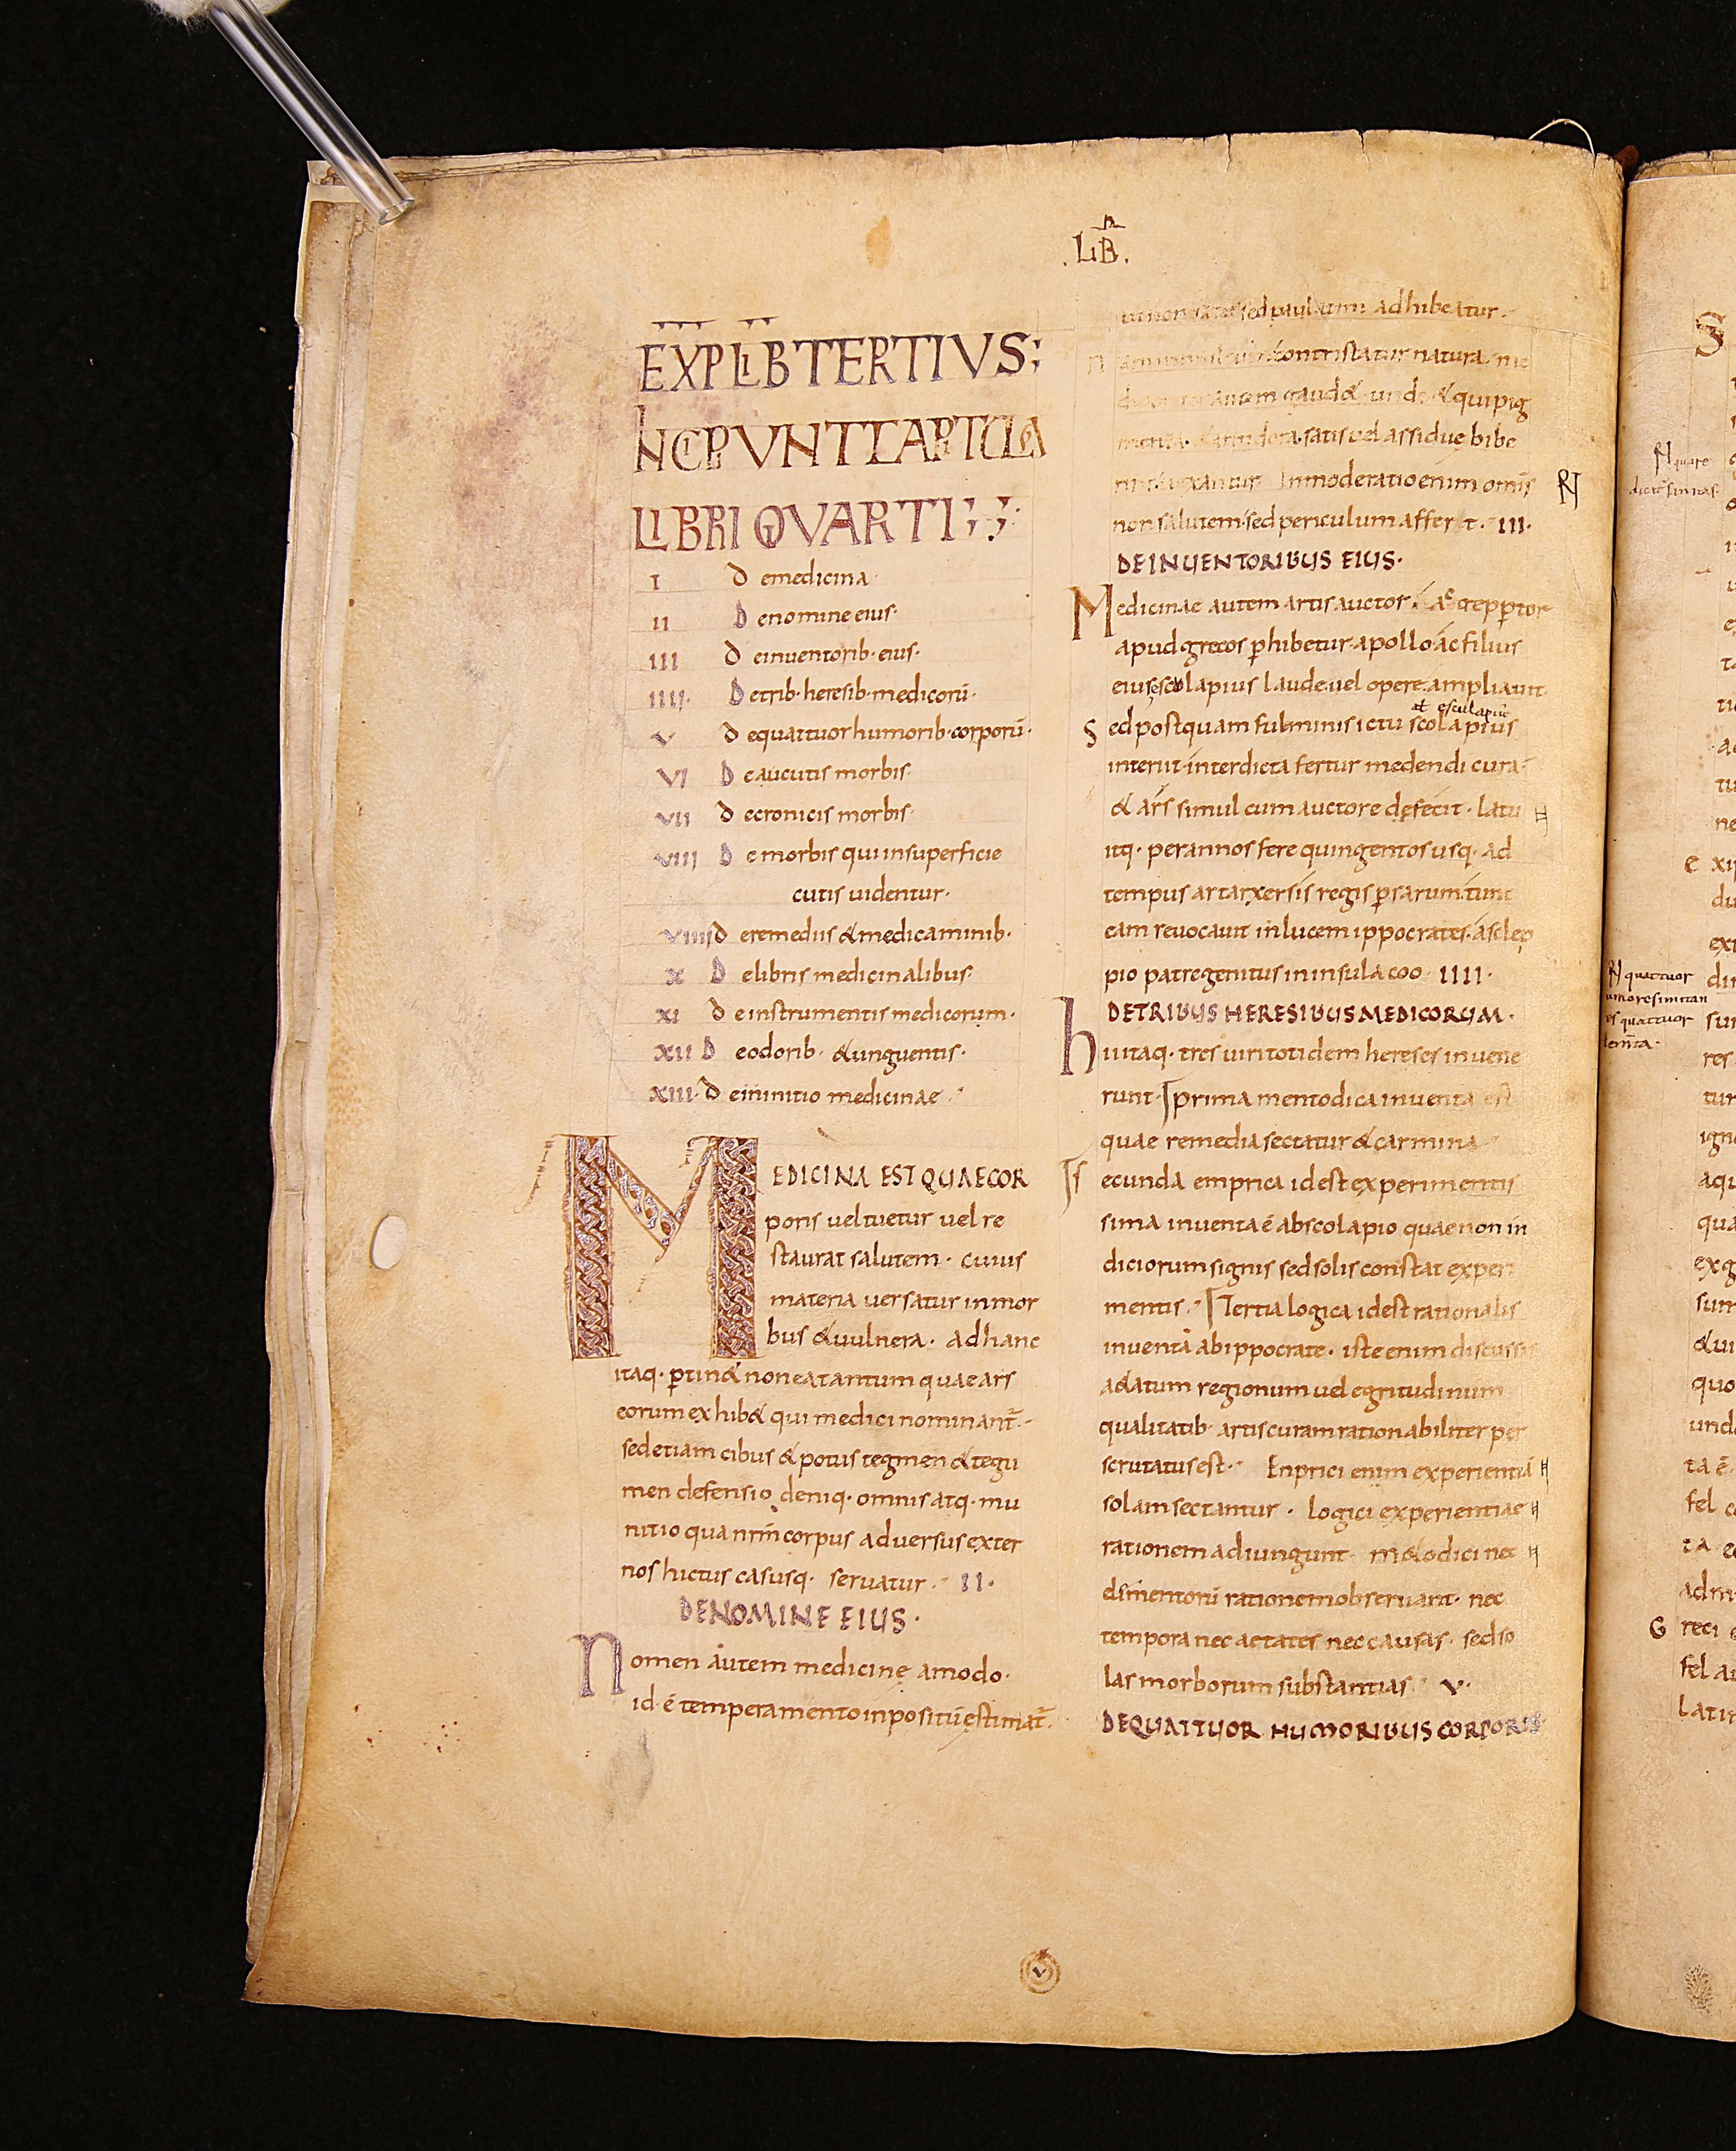 .LiB.
EXPL LIB TERTIVS;
INCIPIVNT CAPITVLA
LIBRI QVARTI;;
I d emedicina
II D enomine eius·
III d einuentorib· eius·
IIII· D etrib· heresib· medicorū·
V d equattuor humorib· corporū·
VI D eaucutis morbis·
VII d ecronicis morbis·
VIII D e morbis qui insuperficie
cutis uidentur·
VIIII d eremediis & medicaminib·
X D elibris medicinalibus·
XI d e instrumentis medicorum·
XII D eodorib· & unguentis·
XIII· d eininitio medicinae
MEDICINA EST QUAECOR
poris uel tuetur uel re
staurat salutem· cuius
materia uersatur inmor
bus & uulnera· adhanc
itaq· ptin& non ea tantum quae ars
eorum exhib& qui medici nominant̄·
sed etiam cibus & potus tegmen & tegu
men defensio deniq· omnis atq· mu
nitio qua nrm̄ corpus aduersus exter
nos hictus casusq· seruatur· II·
DENOMINE EIUS·
Nomen autem medicinę amodo·
id· ē temperamento inpositū ęstimat̄·
sed paulatim adhibeatur·
contristatur natura· me
autem gaud& unde & qui pig
menta· satis uel assidue bibe
Inmoderatio enim omis̄
non salutem· sed periculum affert· III·
DEINUENTORIBUS EIUS·
Medicinae autem artis auctor· ac repptor
apud grecos phibetur· apollo āc filius
eius escolapius laude uel opere ampliauit·
ł esculapius
Sed postquam fulminis ictu scolapius
interiit· interdicta fertur medendi cura·
& ars simul cum auctore defecit· latu
itq· per annos fere quingentos usq· ad
tempus artarxersis regis psarum· tunc
eam reuocauit in lucem ippocrates· asclep
pio patre genitus in insula coo· IIII·
DETRIBUS HERESIBUS MEDICORUM·
hi itaq· tres uiri totidem hereses inuene
runt· prima mentodica inuenta est
quae remedia sectatur & carmina
Secunda emprica id est experimentis
sima inuenta ē ab scolapio quae non in
diciorum signis sed solis constat experi
mentis· Tertia logica id est rationalis
inuenta ab ippocrate· iste enim discussis
a&atum regionum uel egritudinum
qualitatib· artis curam rationabiliter per
scrutatus est· Enprici enim experientiā
solam sectantur· logici experientiae
rationem adiungunt· m&odici nec
elimentorū rationem obseruant· nec
tempora nec aetates nec causas· sed so
las morborum substantias V·
DEQUATTUOR HUMORIBUS CORPORIS